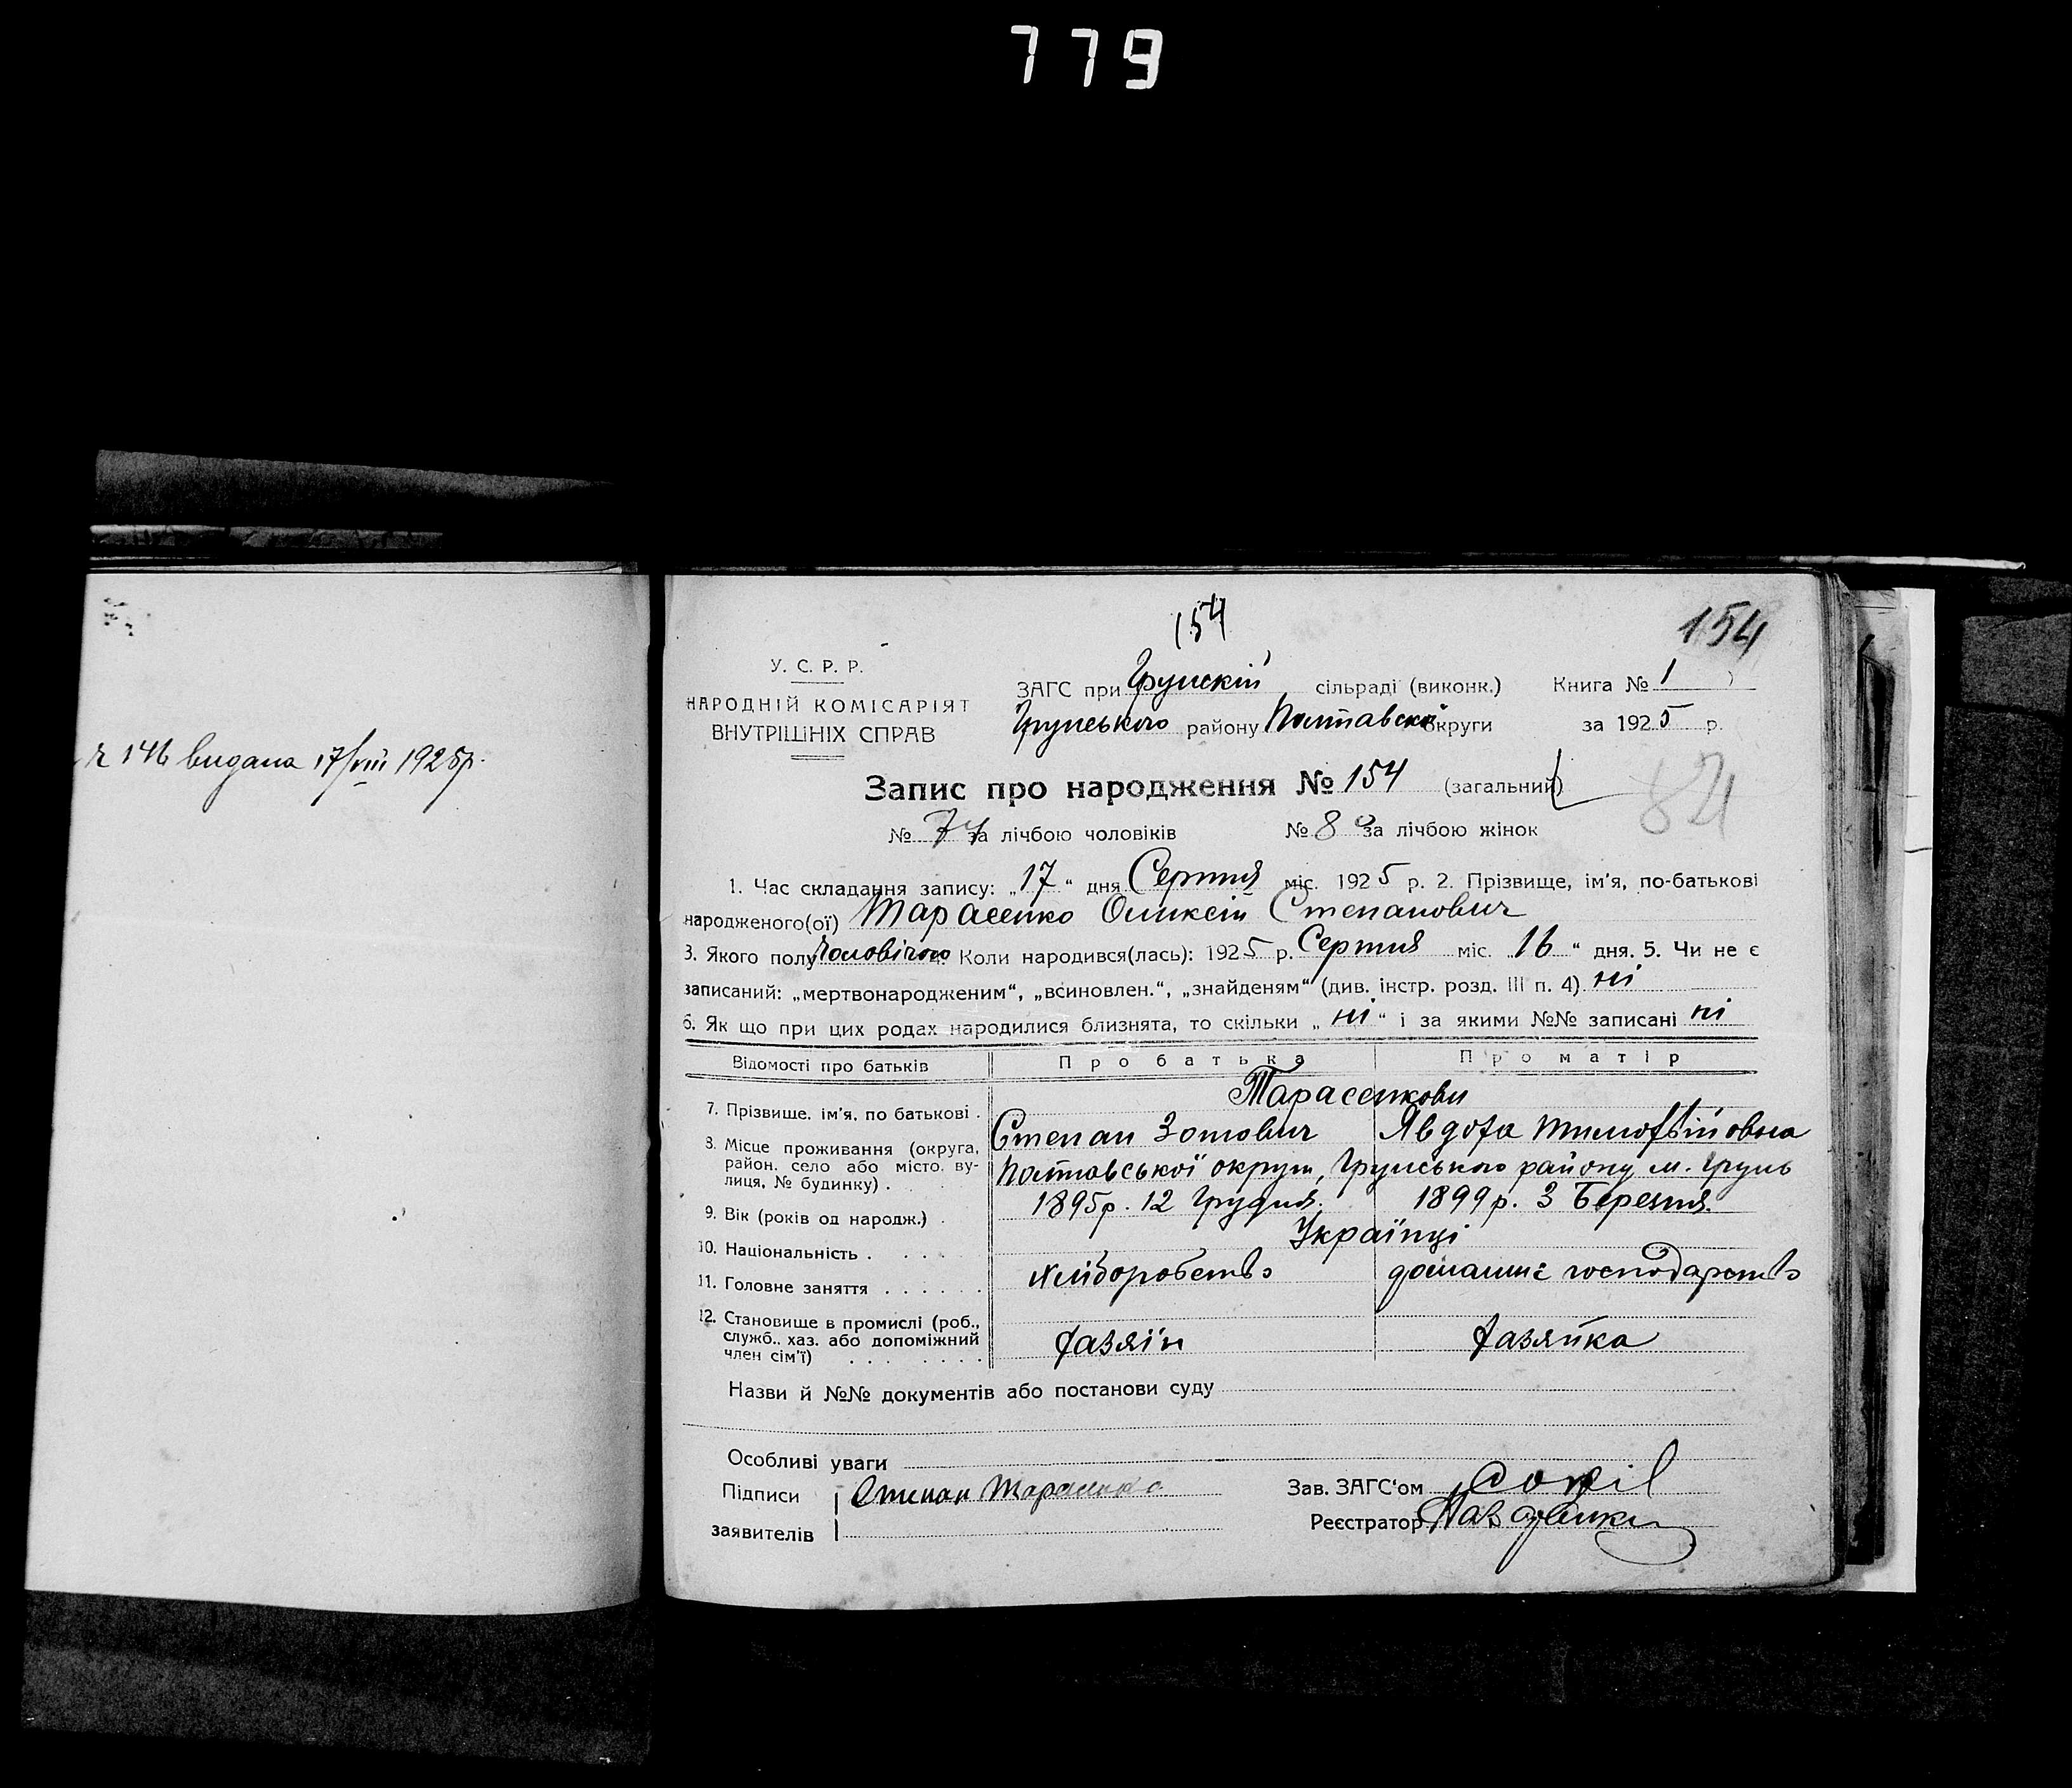 779
№ 146 видана 17/VIII 1925р.
154
154
У. С. Р. Р.
НАРОДНІЙ КОМІСАРІЯТ
ВНУТРІШНІХ СПРАВ
ЗАГС при Грунскій сільраді (виконк.) Книга № 1
Грунського району Полтавської округи за 1925 р.
Запис про народження № 154 (загальний)
84
№ 74 за лічбою чоловіків № 80 за лічбою жінок
1. Час складання запису: „17“ дня Серпня міс. 1925 р. 2. Прізвище, ім'я, по-батькові
народженого(ої) Тарасенко Оликсій Степанович
3. Якого полу Чоловічого 4. Коли народився(лась): 1925 р. Серпня міс. „16“ дня. 5. Чи не є
записаний: „мертвонародженим“, „всиновлен.“, „знайденям“ (див. інстр. розд. III п. 4) ні
6. Як що при цих родах народилися близнята, то скільки „ні“ і за якими №№ записані ні
Відомості про батьків Про батька Про матір
Тарасенкови
7. Прізвище, ім'я, по батькові . Степан Зотович Явдоха Тимофѣйовна
8. Місце проживання (округа, район, село або місто, вулиця, № будинку) . Полтавської округи, Грунського району м. Грунь
9. Вік (років од народж.) . 1895р. 12 Грудня. 1899р. 3 Березня.
10. Національність . . . . Українці
11. Головне заняття . . . . . . хліборобство домашнє господарство
12. Становище в промислі (роб.,
служб., хаз. або допоміжний
член сім'ї) . . . . . . . . хазяїн хазяйка
Назви й №№ документів або постанови суду
Особливі уваги
Підписи Степан Тарасенко Зав. ЗАГС'ом
заявителів Реєстратор